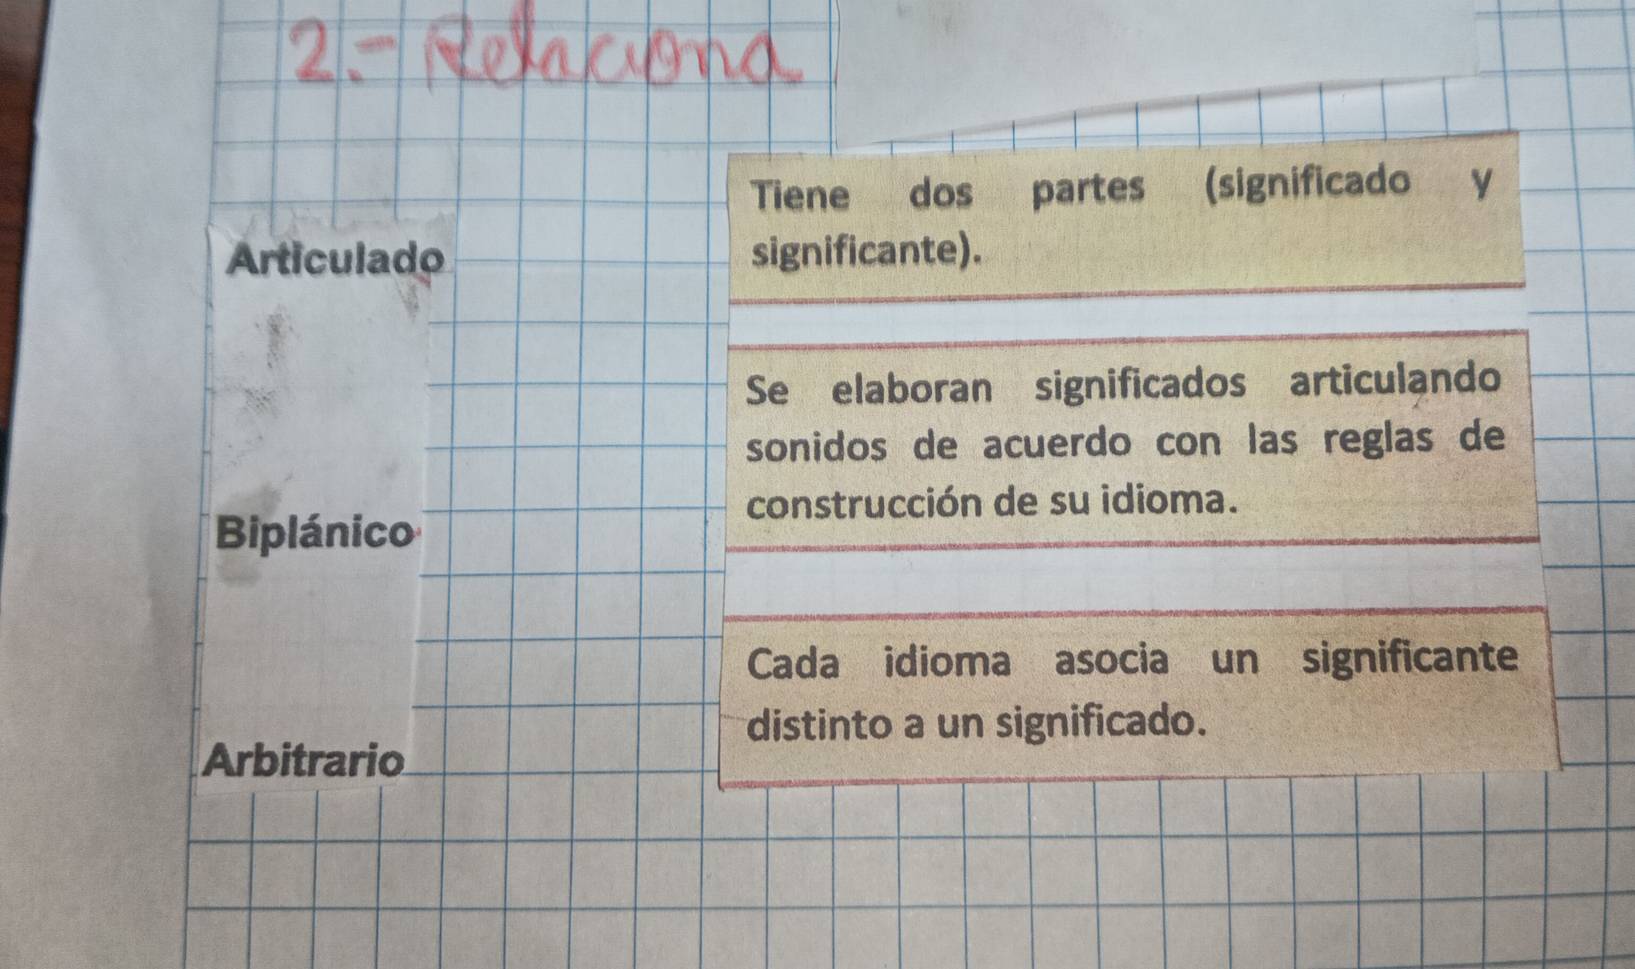 2.- Relaciona
Articulado
Biplánico
Arbitrario
Tiene dos partes (significado y
significante).
Se elaboran significados articulando
sonidos de acuerdo con las reglas de
construcción de su idioma.
Cada idioma asocia un significante
distinto a un significado.